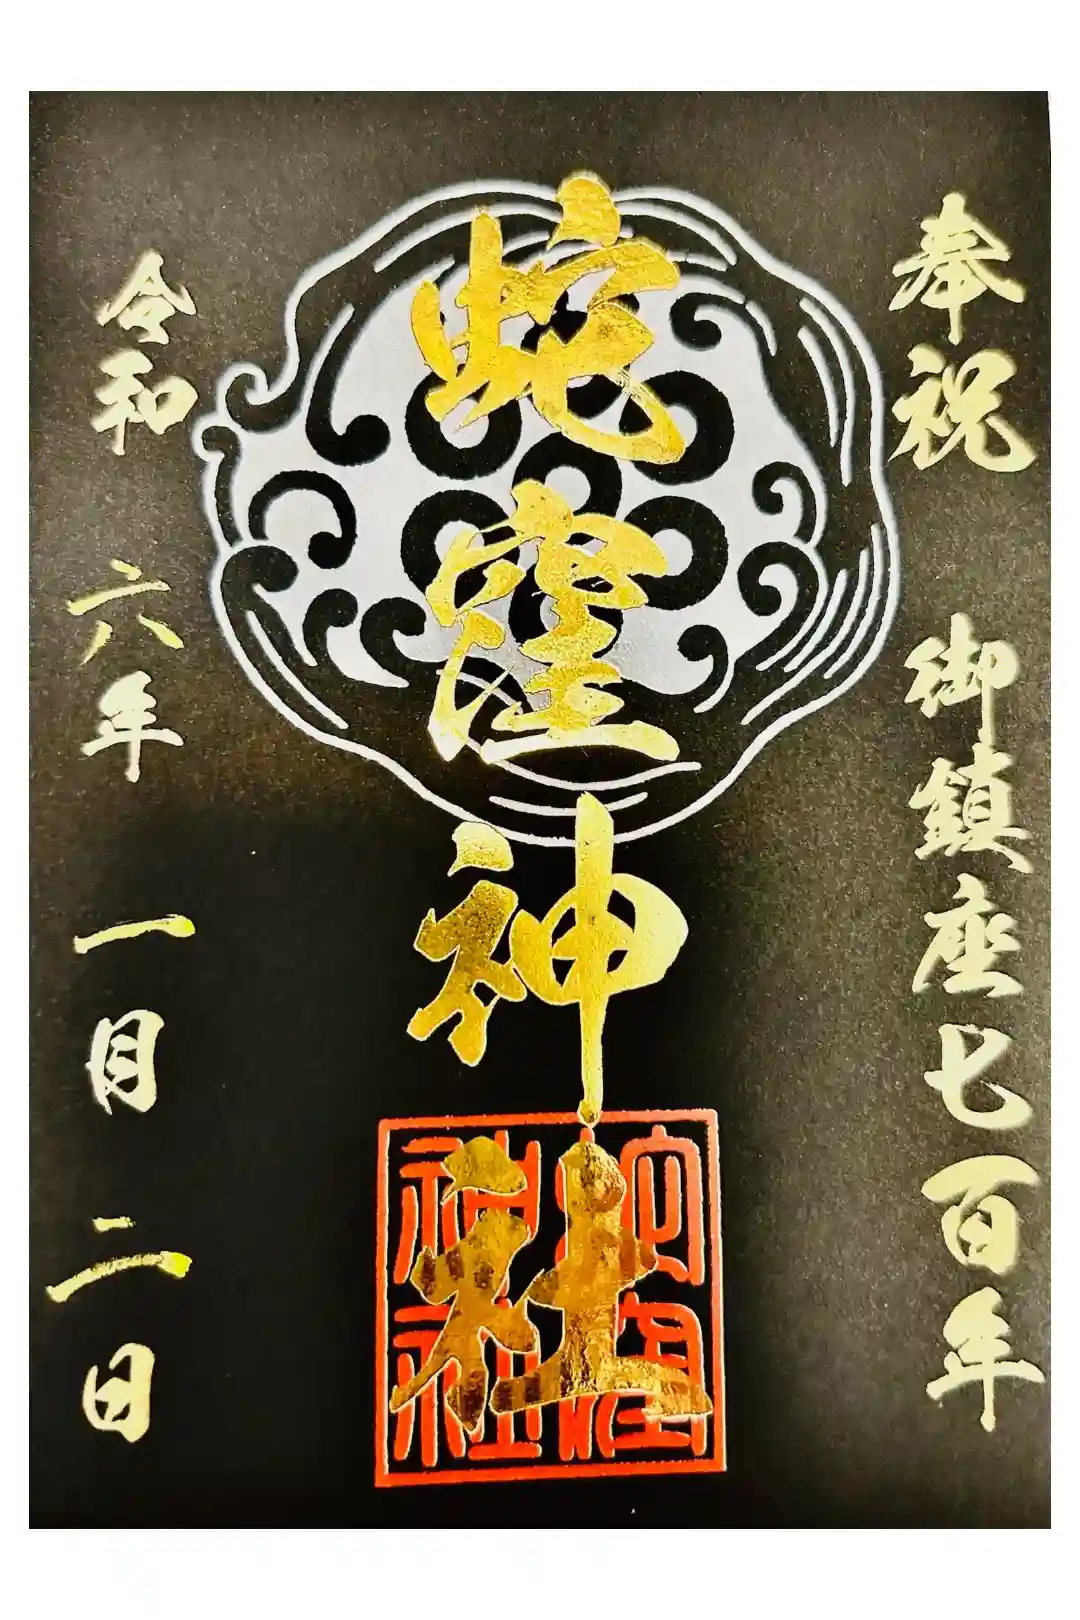 奉祝 御鎮座七百年
蛇窪神社
蛇窪
神社
令和 六年 一月 二日